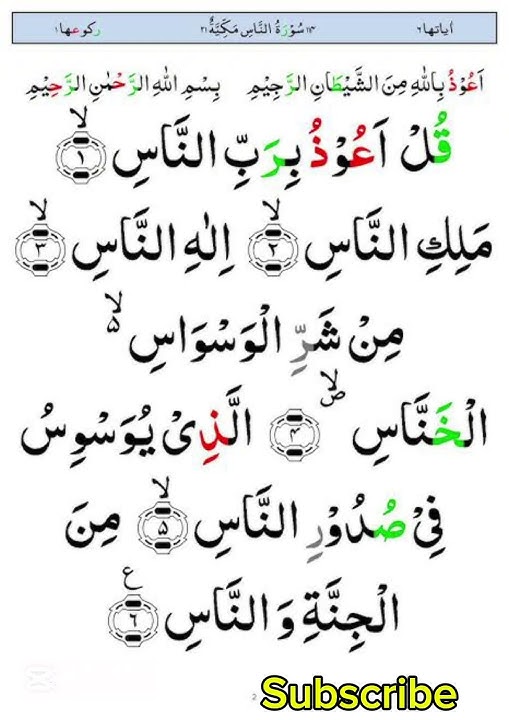 اٰیاتھا ٦ ۱۱۳ سُوْرَةُ النَّاسِ مَكِّيَّةٌ ۲۱ رکوعھا ۱
اَعُوْذُ بِاللّٰهِ مِنَ الشَّيْطَانِ الرَّجِيْمِ بِسْمِ اللّٰهِ الرَّحْمٰنِ الرَّحِيْمِ
قُلْ اَعُوْذُ بِرَبِّ النَّاسِ ۙ﴿۱﴾
مَلِكِ النَّاسِ ۙ﴿۲﴾ اِلٰهِ النَّاسِ ۙ﴿۳﴾
مِنْ شَرِّ الْوَسْوَاسِ ۙ۵
الْخَنَّاسِ ۙ ۪ ﴿۴﴾ الَّذِیْ يُوَسْوِسُ
فِیْ صُدُوْرِ النَّاسِ ۙ﴿۵﴾ مِنَ
الْجِنَّةِ وَ النَّاسِ ﴿۶﴾ ع
2
Subscribe